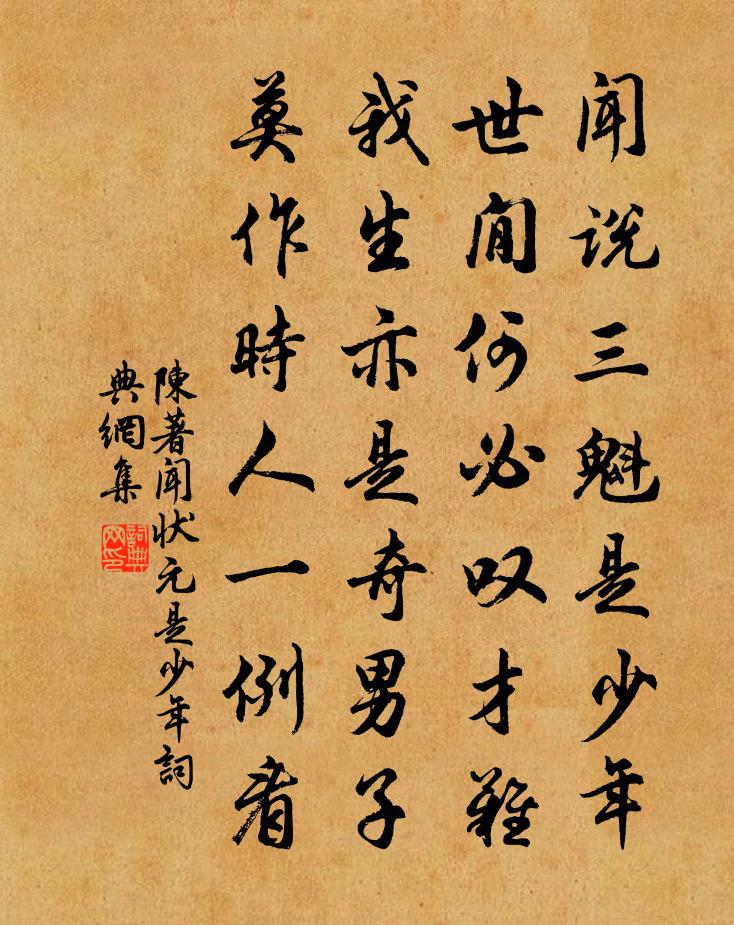 闻说三魁是少年
世间何必叹才难
我生亦是奇男子
莫作時人一例看
陳著闻状元是少年詞
典網集
詞典
网印